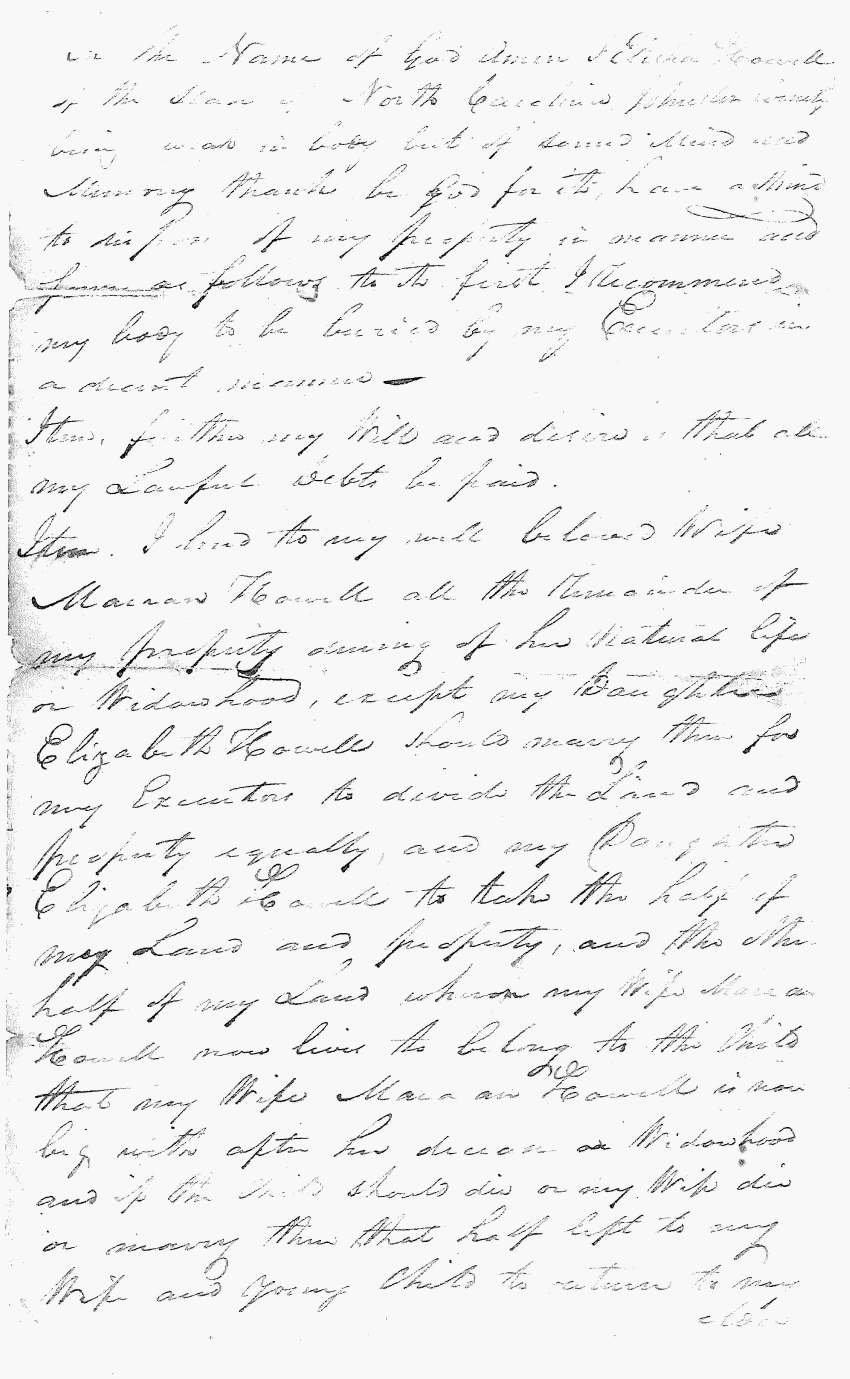 In the Name of God Amen I Elisha Howell
of the State of North Carolina Johnston County
being weak in body but of sound Mind and
Memory thanks be God for it, have a Mind
to dispose of my property in manner and
form as follows to th first I Recommend
my body to be buried by my Executors in
a decent manner —
Item, further my Will and desire is that all
my Lawful Debts be paid.
Item. I lend to my well beloved Wife
Howell all the Remainder of
my property during of her Natural life
or Widowhood, except my Daughter
Elizabeth Howell should marry then for
my Executors to divide the Land and
property equally, and my Daughter
Elizabeth Howell to take the half of
my Land and property, and the other
half of my Land whereon my Wife
Howell now lives to belong to the Child
that my Wife Howell is now
big with after her decease or Widowhood
and if the Child should die or my Wife die
or marry then that half left to my
Wife and young Child to return to my